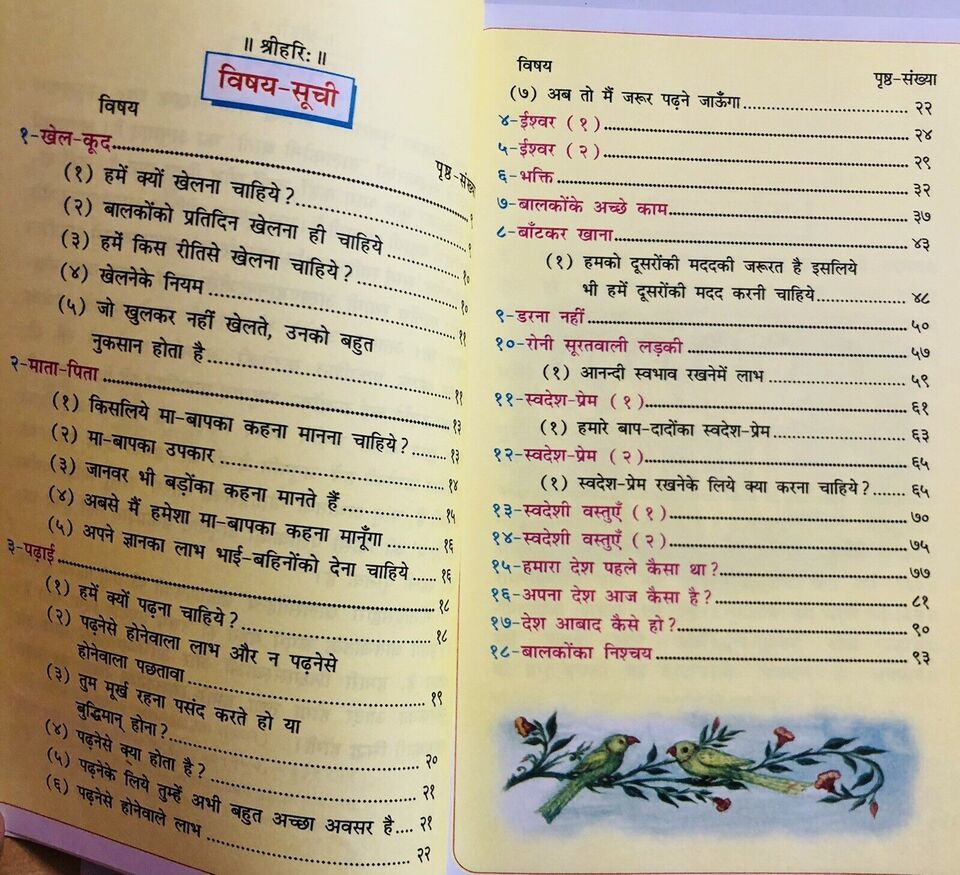 ॥ श्रीहरिः ॥
विषय-सूची
विषय पृष्ठ-संख्या
१-खेल-कूद १
(१) हमें क्यों खेलना चाहिये? १
(२) बालकोंको प्रतिदिन खेलना ही चाहिये १०
(३) हमें किस रीतिसे खेलना चाहिये? १०
(४) खेलनेके नियम ११
(५) जो खुलकर नहीं खेलते, उनको बहुत
नुकसान होता है ११
२-माता-पिता १३
(१) किसलिये मा-बापका कहना मानना चाहिये? १३
(२) मा-बापका उपकार १४
(३) जानवर भी बड़ोंका कहना मानते हैं १५
(४) अबसे मैं हमेशा मा-बापका कहना मानूँगा १६
(५) अपने ज्ञानका लाभ भाई-बहिनोंको देना चाहिये १६
३-पढ़ाई १८
(१) हमें क्यों पढ़ना चाहिये? १८
(२) पढ़नेसे होनेवाला लाभ और न पढ़नेसे
होनेवाला पछतावा १९
(३) तुम मूर्ख रहना पसंद करते हो या
बुद्धिमान् होना? २०
(४) पढ़नेसे क्या होता है? २१
(५) पढ़नेके लिये तुम्हें अभी बहुत अच्छा अवसर है २१
(६) पढ़नेसे होनेवाले लाभ २२
विषय पृष्ठ-संख्या
(७) अब तो मैं जरूर पढ़ने जाऊँगा २२
४-ईश्वर (१) २४
५-ईश्वर (२) २९
६-भक्ति ३२
७-बालकोंके अच्छे काम ३७
८-बाँटकर खाना ४३
(१) हमको दूसरोंकी मददकी जरूरत है इसलिये
भी हमें दूसरोंकी मदद करनी चाहिये ४८
९-डरना नहीं ५०
१०-रोनी सूरतवाली लड़की ५७
(१) आनन्दी स्वभाव रखनेमें लाभ ५९
११-स्वदेश-प्रेम (१) ६१
(१) हमारे बाप-दादोंका स्वदेश-प्रेम ६३
१२-स्वदेश-प्रेम (२) ६५
(१) स्वदेश-प्रेम रखनेके लिये क्या करना चाहिये? ६५
१३-स्वदेशी वस्तुएँ (१) ७०
१४-स्वदेशी वस्तुएँ (२) ७५
१५-हमारा देश पहले कैसा था? ७७
१६-अपना देश आज कैसा है? ८१
१७-देश आबाद कैसे हो? ९०
१८-बालकोंका निश्चय ९३